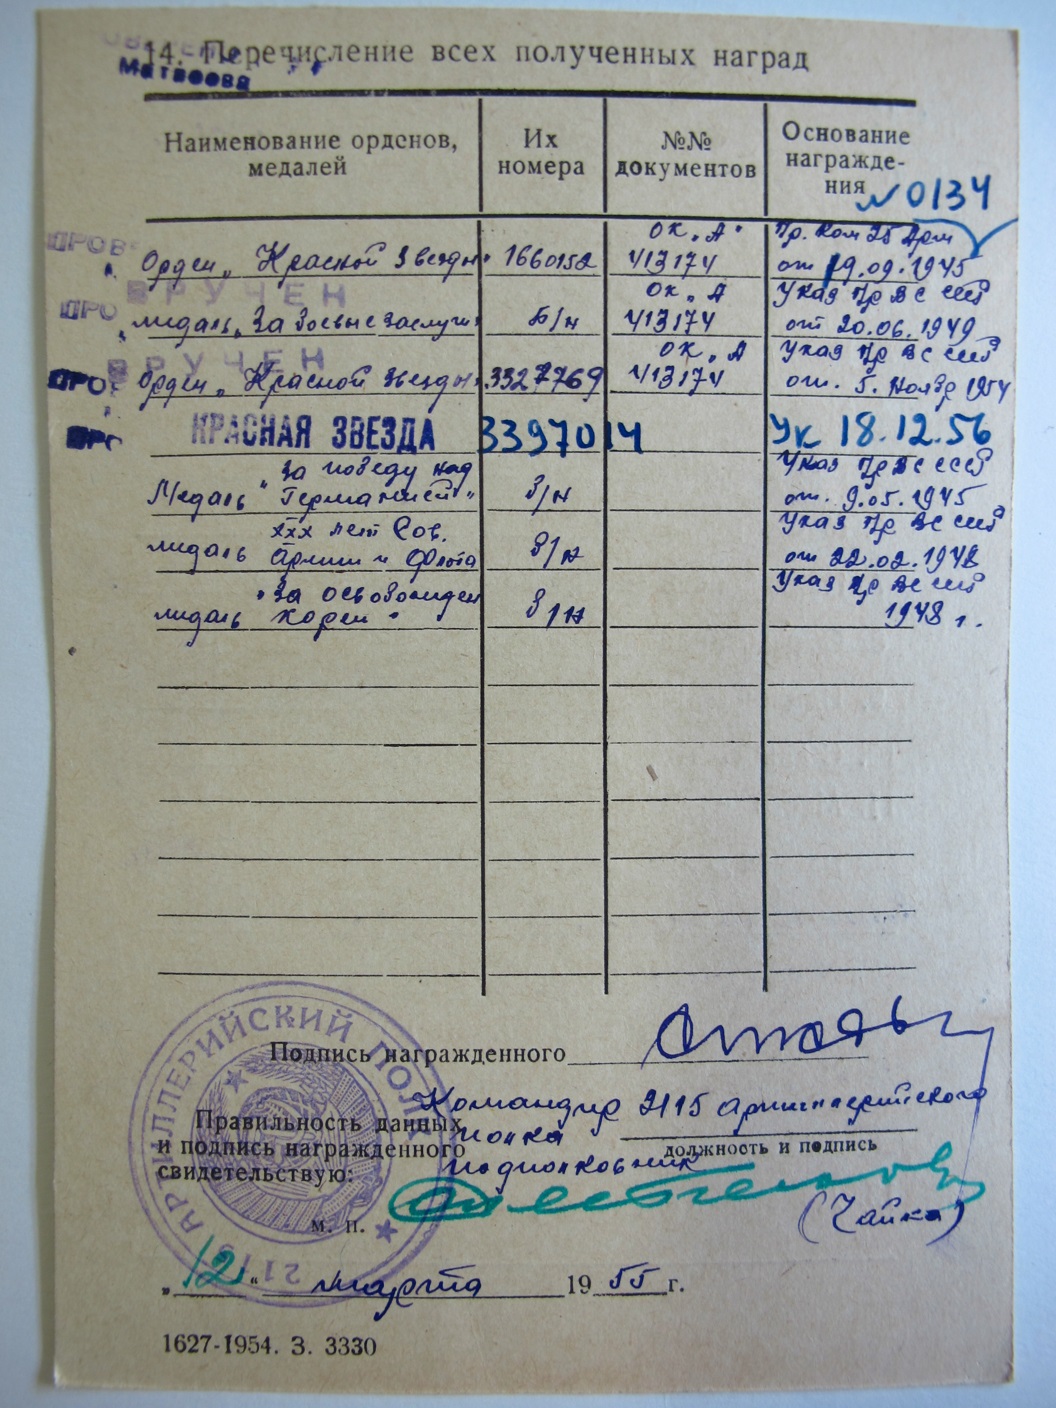 14. Перечисление всех полученных наград
Матвеева
Наименование орденов, медалей
Их номера
№№ документов
Основание награжде-
ния
№ 0134
ПРОВ
Орден „Красной Звезды" 1660152 ОК „А" 413174 Пр. Ком 25 Арм от 19.09.1945
ВРУЧЕН
ПРО
медаль „За боевые заслуги" Б/н ОК „А 413174 Указ Пр ВС СССР от 20.06.1949
ВРУЧЕН
ПРО
Орден „Красной Звезды" 3327769 ОК „А 413174 Указ Пр ВС СССР от. 5. Ноябр 1954
КРАСНАЯ ЗВЕЗДА 3397014 Ук 18.12.56
Медаль „За победу над Германией" Б/н Указ Пр ВС СССР от. 9.05.1945
медаль ХХХ лет Сов. Армии и Флота Б/н Указ Пр ВС СССР от 22.02.1948
медаль „За освобожден Кореи" Б/н Указ Пр ВС СССР 1948 г.
Подпись награжденного
Правильность данных
и подпись награжденного
свидетельствую:
Командир 2115 артиллерийского
полка
должность и подпись
подполковник
(Чайка)
м. п.
АРТИЛЛЕРИЙСКИЙ ПОЛК
„12" марта 1955 г.
1627-1954. З. 3330